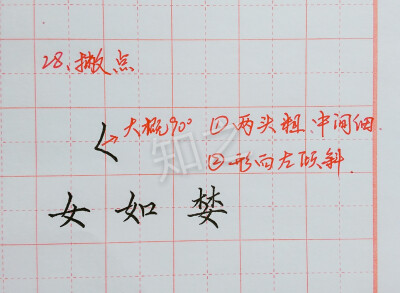 28、撇点
く大概90° ①两头粗、中间细.
②形向左倾斜.
女 如 婪
知乎